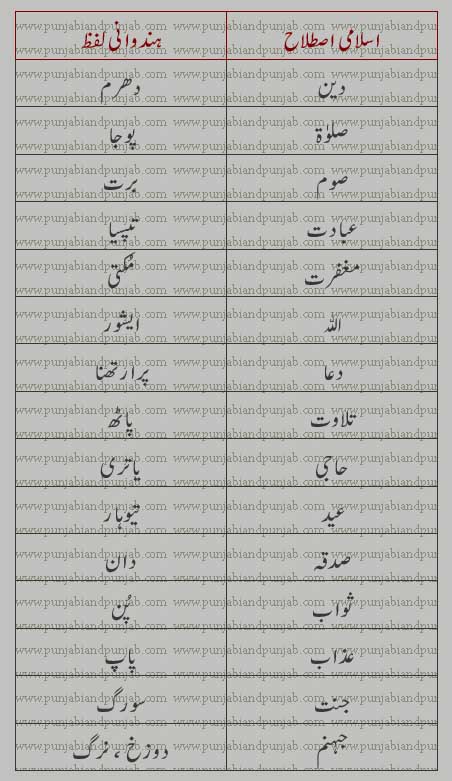 اسلامی اصطلاح ہندوانی لفظ
دین دھرم
صلوٰۃ پوجا
صوم برت
عبادت تپسیا
مغفرت مُکتی
اللہ ایشور
دعا پرارتھنا
تلاوت پاٹھ
حاجی یاتری
عید تیوہار
صدقہ دان
ثواب پُن
عذاب پاپ
جنت سورگ
جہنم دوزخ ، نرگ
www.punjabiandpunjab.com